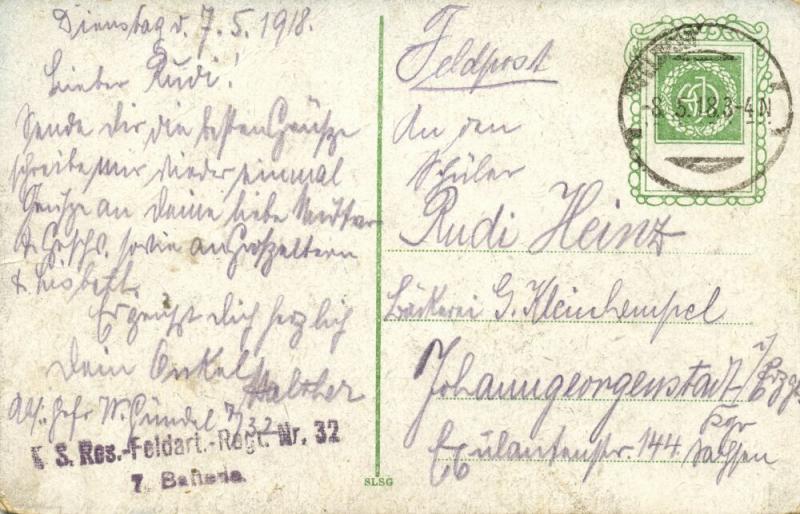 Dienstag d. 7.5.1918.
Lieber Rudi!
Sende Dir die besten Grüsze
schreibe mir wieder einmal
Grüsze an Deine liebe Mutter
& Geschs. sowie an Groszeltern
& Lisbett.
Es grüszt Dich herzlich
Dein Onkel
Walther
Abs.: Gefr W. Gündel 7/32
K. S. Res.-Feldart.-Regt. Nr. 32
7. Batterie.
Feldpost
An den
Schüler
Rudi Heinz
Bäckerei G. Kleinhempel
Johanngeorgenstadt i/Erzge.
Exulantenstr. 144. Kgr
Sachsen
-8.5.18.3-4N
SLSG